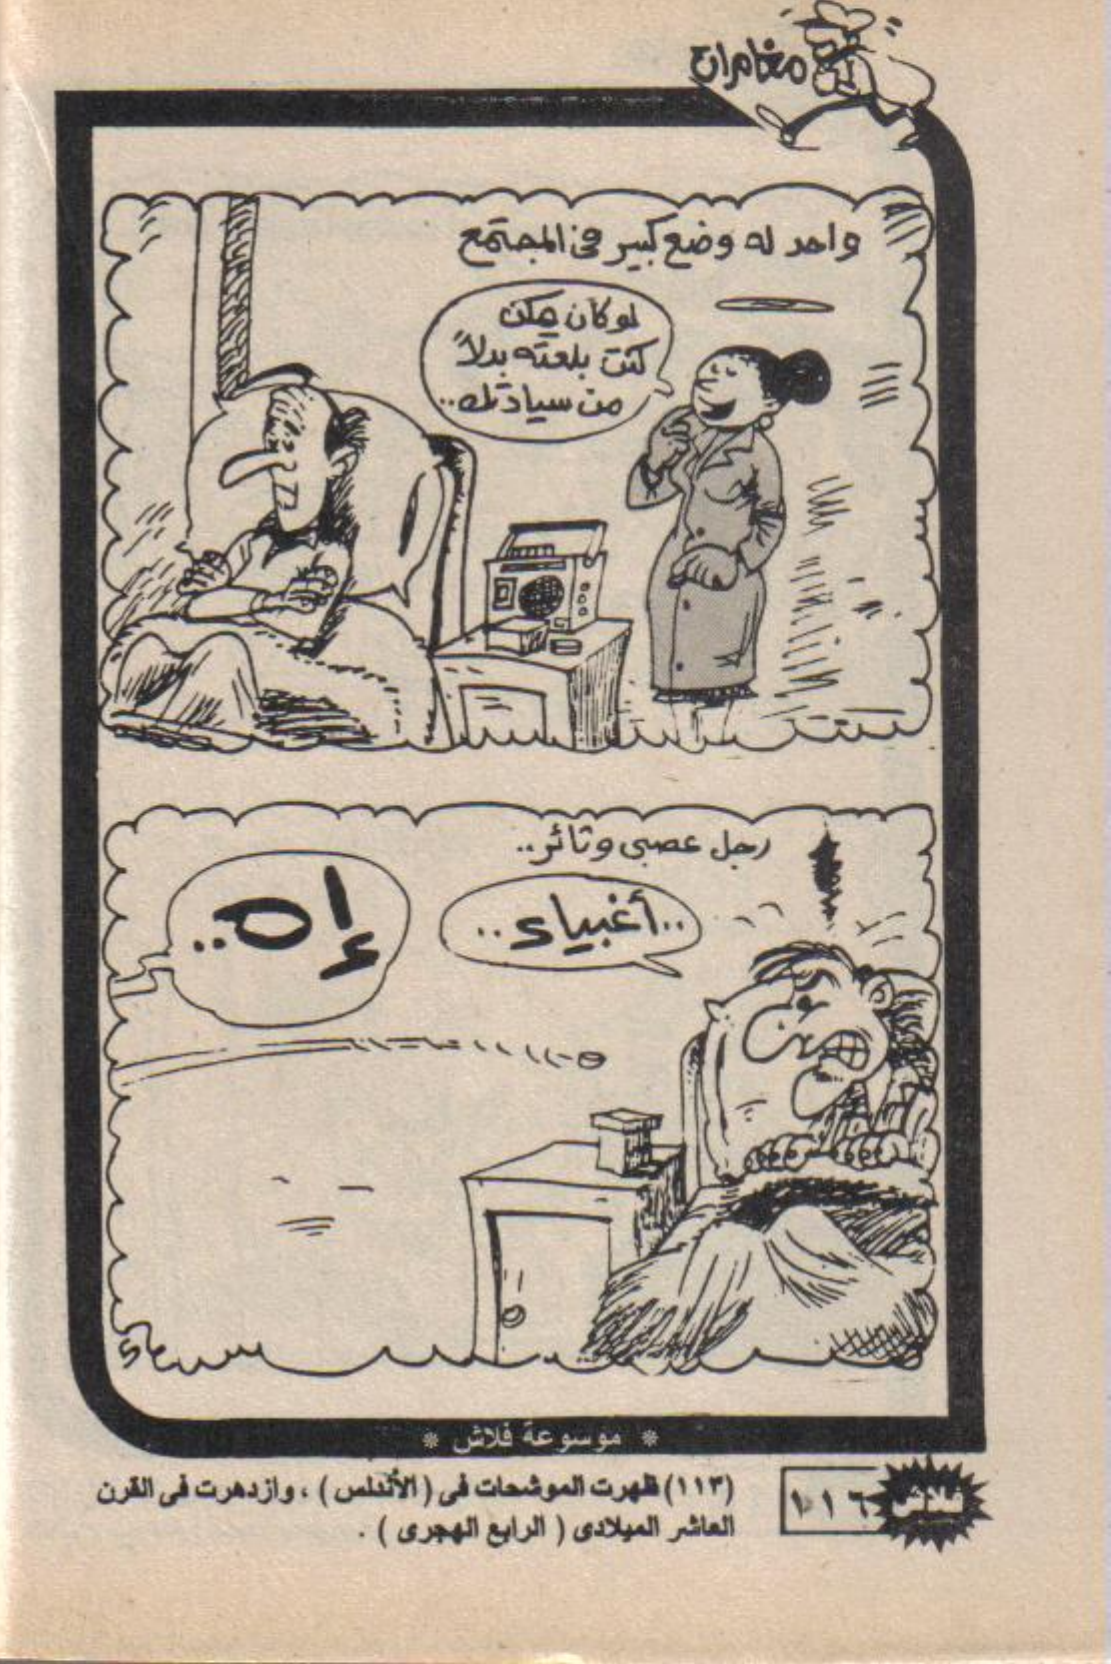 مغامرات
واحد له وضع كبير فى المجتمع
لو كان ممكن
كنت بلعته بدلاً
من سيادتك..
رجل عصبى وثائر..
..أغبياء..
إه..
* موسوعة فلاش *
فلاش ١١٦
(١١٣) ظهرت الموشحات فى (الأندلس) ، وازدهرت فى القرن
العاشر الميلادى ( الرابع الهجرى ) .